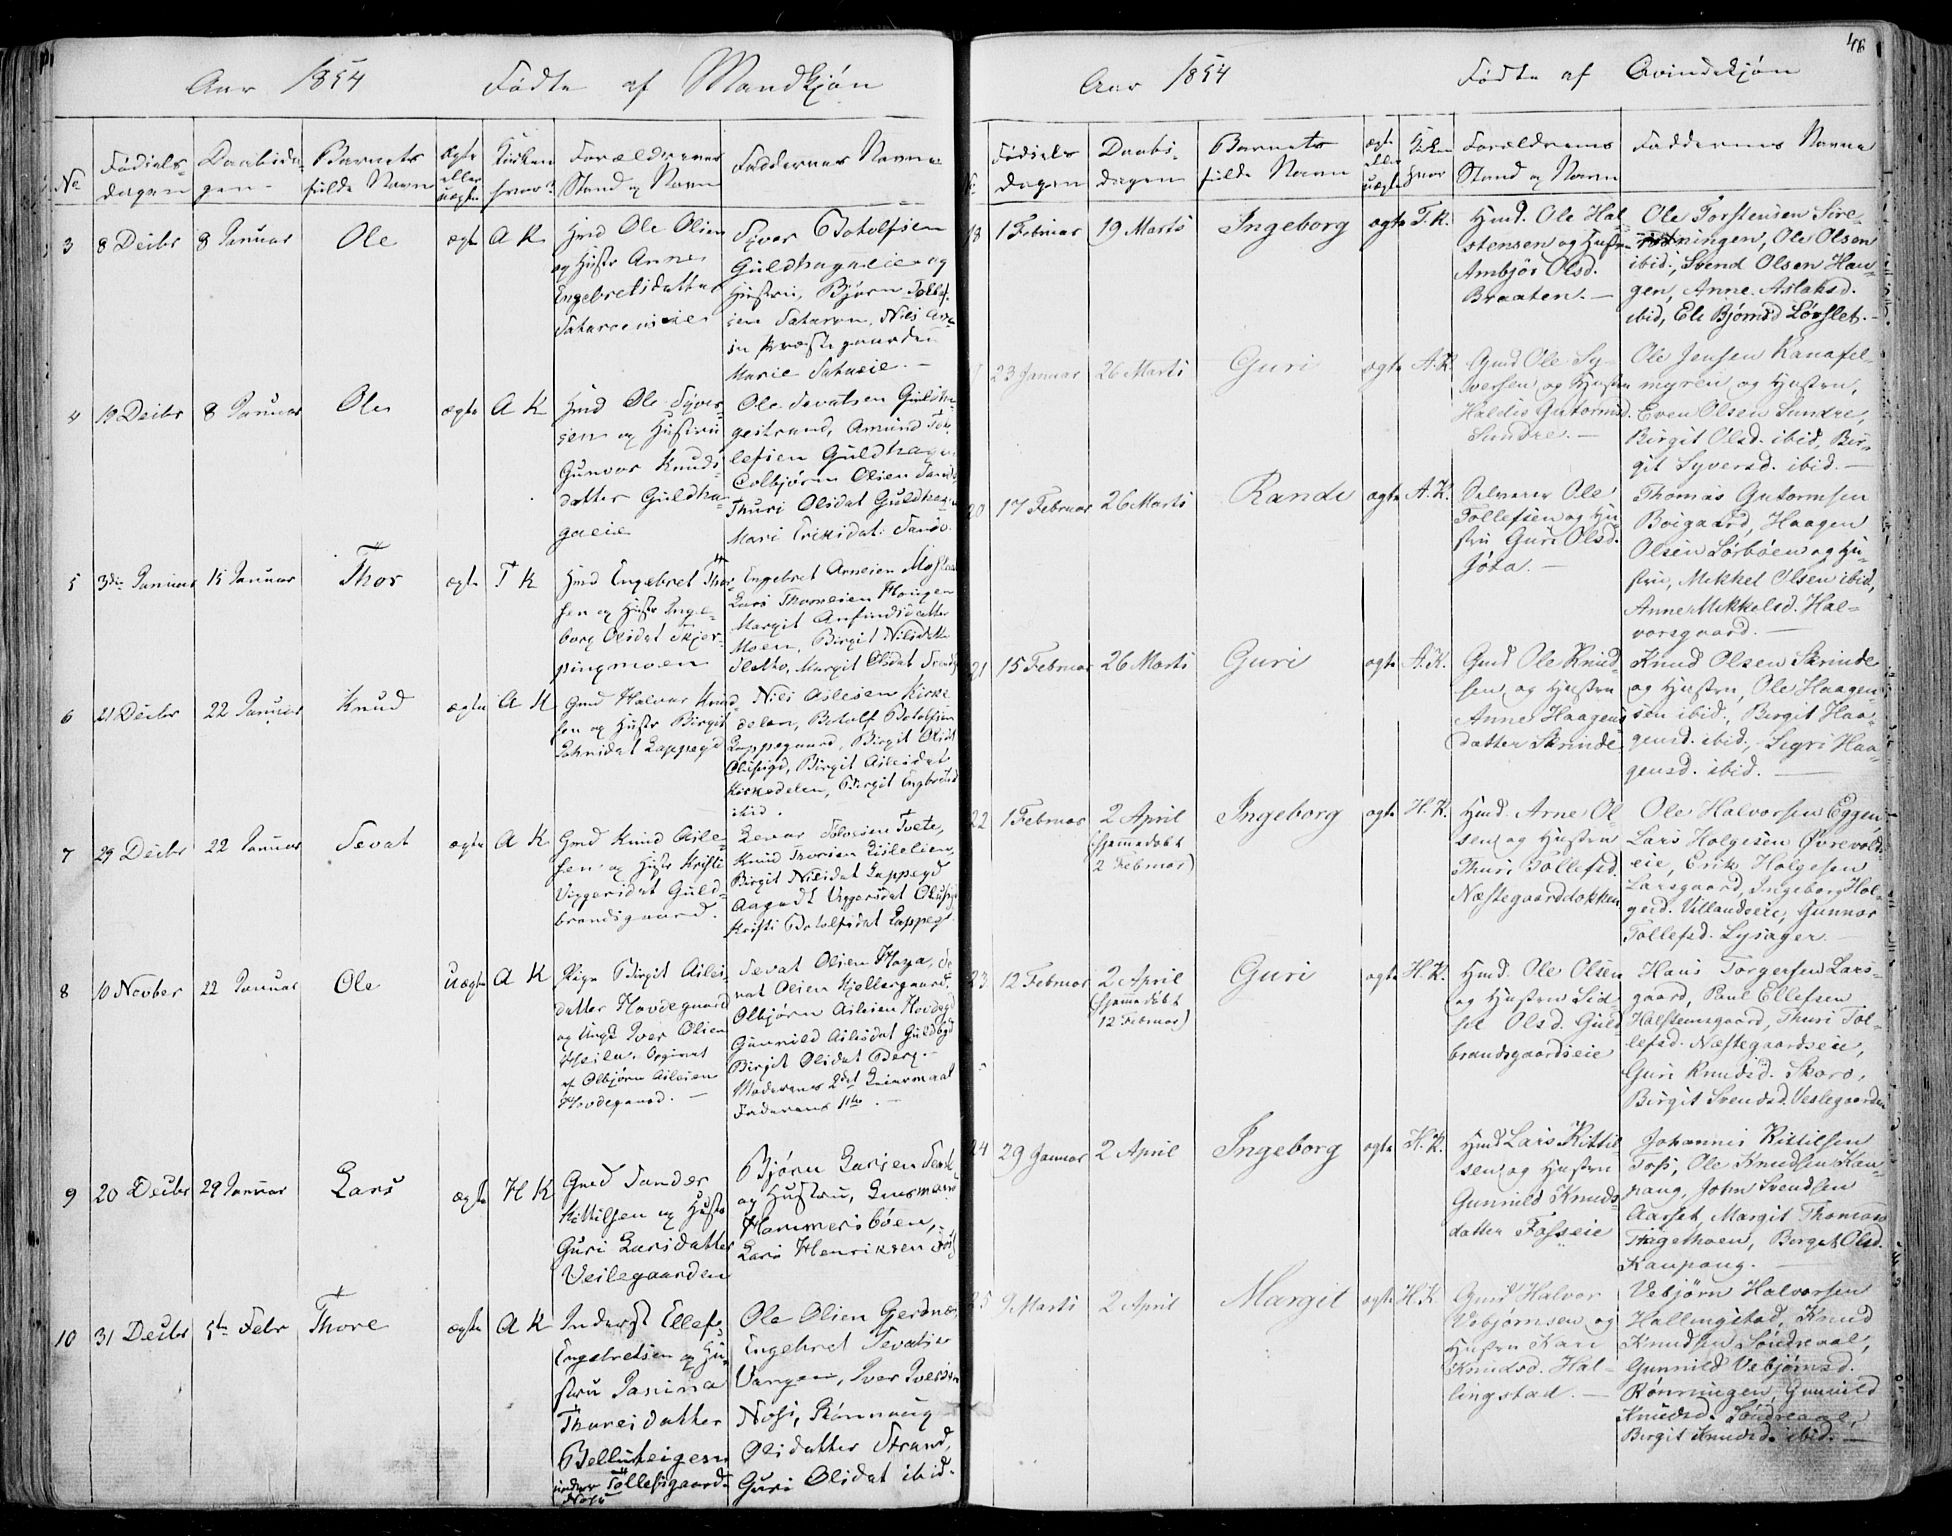 Aar 1854 Fødte af Mandkjøn
No
Fødsels-
dagen
Daabsda-
gen
Barnets
fulde Navn
Ægte
eller
uægte
Kirken
hvor?
Forældrenes
Stand og Navn
Faddernes Navne
3 8 Decbr 8 Januar Ole ægte A K
Hmd Ole Olsen
og Hustr Anne
Engebretsdatter
Satareneie
Syver Botolfsen
Guldhageneie og
Hustru, Bjørn Tollef-
sen Sataren, Nils
in Præstegaarden
Marie Sataeie. —
4 19 Decbr 8 Januar Ole ægte A K
Hmd Ole Syver-
sen og Hustru
Gunvor Knuds-
datter Guldha-
geeie
Ole Sevatsen Guldha-
gestrand, Amund Tol-
lefsen Guldhagen
Colbjørn Olsen
Thuri Olsdat Guldhagen
Mari Eriksdat:
5 3die Januar 15 Januar Thor ægte T K
Hmd Engebret Thor-
sen og Hustr Inge-
borg Olsdat Skjer-
pingmoen
Engebret Arnesen
Lars Thomesen Haugen
Margit Arfindsdatter
Moen, Birgit Nilsdatter
Slatto, Margit Olsdat
6 21 Decbr 22 Januar Knud ægte A K
Gmd Halvor Knud-
sen og Hustr Birgit
Lappegd
Nils Aslesen Kirke-
delen, Botolf Botolfsen
Lappegaard, Birgit Olsdat
Birgit Aslesdat
Kirkedelen, Birgit Engbretsd
ibid.
7 29 Decbr 22 Januar Sevat ægte A K
Gmd Knud Asle-
sen og Hustr Kristi
Viggersdat Guld-
brandsgaard.
Levor Tolvsen Tveto,
Knud Thorsen Lislelien,
Birgit Nilsdat Lappegd
Aagodt Viggersdat
Kristi Botolfsdat Lappegd
8 10 Novber 22 Januar Ole Uægte A K
Pige Birgit Asles-
datter Hovdegaard
og Ungk Iver Olsen
af Olbjørn Aslesen
Hovdegaard. —
Sevat Olsen Haga, Se-
vat Olsen Kjellergaard,
Olbjørn Aslesen Hovdegd
Gunnild Aslesdat Guldbgd
Birgit Olsdat Berg. —
Moderens 2det Leiermaal
Faderens 1ste. —
9 20 Decbr 29 Januar Lars ægte H K
Gmd Sander
Kittilsen og Hustr
Guri Larsdatter
Veslegaarden
Bjørn Larsen
og Hustru,
Hammersbøen,
Lars Henriksen
10 31 Decbr 5te Febr Thore ægte A K
Inderst Ellef
Engebretsen og Hu-
stru Janina
Thoresdatter
Bellesteigen
under Tollefsgaard
Ole Olsen Gjerdnæs,
Engebret Sevatsen
Vangen, Iver Iversen
Næsi, Rønnaug
Olsdatter Strand,
Guri Olsdat ibid.
Aar 1854 Fødte af Qvindekjøn 48
Fødsels
dagen
Daabs-
dagen
Barnets
fulde Navn
ægte
eller
uægte
Kirken
hvor
Forældrenes
Stand og Navn
Faddernes Navne
18 1 Februar 19 Marts Ingeborg ægte T. K.
Hmd. Ole Hal-
stensen og Hustru
Ambjør Olsd.
Braaten. —
Ole Torstensen Sire-
Ole Olsen
ibid., Svend Olsen Hau-
gen, Anne Aslaksd.
ibid, Eli Bjørnsd Løvslet. —
23 Januar 26 Marts Guri ægte A. K.
Gmd Ole Sy-
versen og Hustru
Haldis Gutormsd.
Sundre. —
Ole Jensen Kanafel-
myren og Hustru,
Even Olsen Sundre,
Birgit Olsd. ibid, Bir-
git Syversd. ibid. —
20 17 Februar 26 Marts Randi ægte A. K.
Selveier Ole
Tollefsen og Hu-
stru Guri Olsd.
Jota. —
Thomas Gutormsen
Boigaard, Haagen
Olsen Lørbøen og Hu-
stru, Mekkel Olsen ibid,
Anne Mekkelsd. Hal-
vorsgaard. —
21 15 Februar 26 Marts Guri ægte A. K.
Gmd Ole Knud-
sen og Hustru
Anne Haagens-
datter Skrinde
Knud Olsen Skrinde
og Hustru, Ole Haagen-
sen ibid., Birgit Haa-
gensd. ibid., Sigri Haa-
gensd. ibid. —
22 1 Februar 2 April Ingeborg ægte H. K.
(hjemmedøbt
2 Februar)
Hmd. Arne Ol-
sen og Hustru
Thuri Tollefsd.
Næstegaardslokken
Ole Halvorsen Eggen,
Lars Holgesen Øvrevolds-
eie, Erik Holgesen
Larsgaard, Ingeborg Hol-
gesd. Villandseie, Gunnor
Tollefsd. Lysager. —
23 12 Februar 2 April Guri ægte H. K.
(hjemmedøbt
12 Februar)
Hmd. Ole Olsen
og Hustru Sid-
sel Olsd. Guld-
brandsgaardseie
Hans Torgersen Lars-
gaard, Paul Ellefsen
Halstensgaard, Thuri Tol-
lefsd. Næstegaardseie,
Guri Knudsd. Skoro,
Birgit Svendsd. Veslegaarden
24 29 Januar 2 April Ingeborg ægte H. K.
Hmd Lars Kittil-
sen og Hustru
Gunnild Knuds-
datter Fosseie
Johannis Kittilsen
Foss, Ole Knudsen Kau-
pang, John Svendsen
Aasset, Margit Thomasd
Hagethoen, Birget Olsd.
Kaupang. —
25 9 Marts 2 April Margit ægte H. K.
Gmd Halvor
Vebjørnsen og
Hustru Kari
Knudsd. Hal-
lingstad. —
Vebjørn Halvorsen
Hallingstad, Knud
Knudsen Søndreaal,
Gunnild Vebjørnsd.
Rønningen, Gunnild
Knudsd. Søndreaal,
Birgit Knudsd. ibid. —